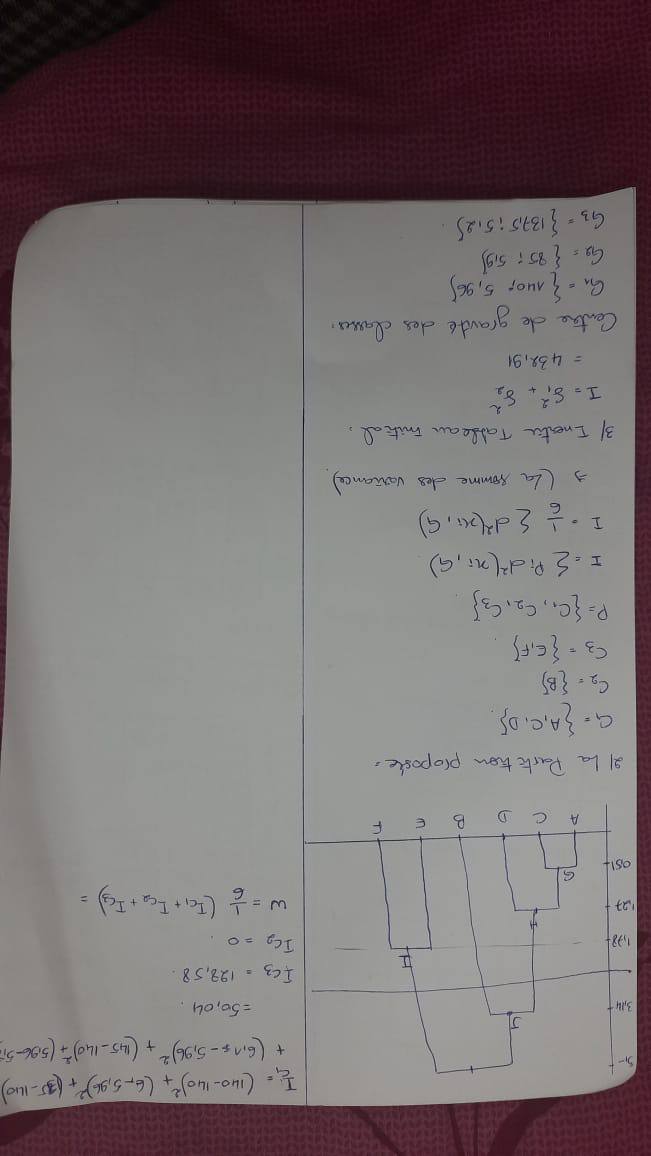 5,-
J
3,14
I
1,78
H
1,27
G
0,51
A C D B E F
2/ La Partition proposée.
C₁ = {A, C, D}.
C₂ = {B}
C₃ = {E, F}.
P = {C₁, C₂, C₃}
I = Σ Pi d²(xi, G)
I = 1/6 Σ d²(xi, G)
⇒ (La somme des variance)
3/ Inertie Tableau initial.
I = δ₁² + δ₂²
= 432,91
Centre de gravité des classes.
G₁ = {140; 5,96}
G₂ = {85; 5,9}
G₃ = {137,5; 5,2}.
I_C₁ = (140-140)² + (6,-5,96)² + (35-140)
+ (6,1 - 5,96)² + (145-140)² + (5,96-5,
= 50,04.
I_C₃ = 128,58.
I_C₂ = 0.
W = 1/6 (I_C₁ + I_C₂ + I_C₃) =